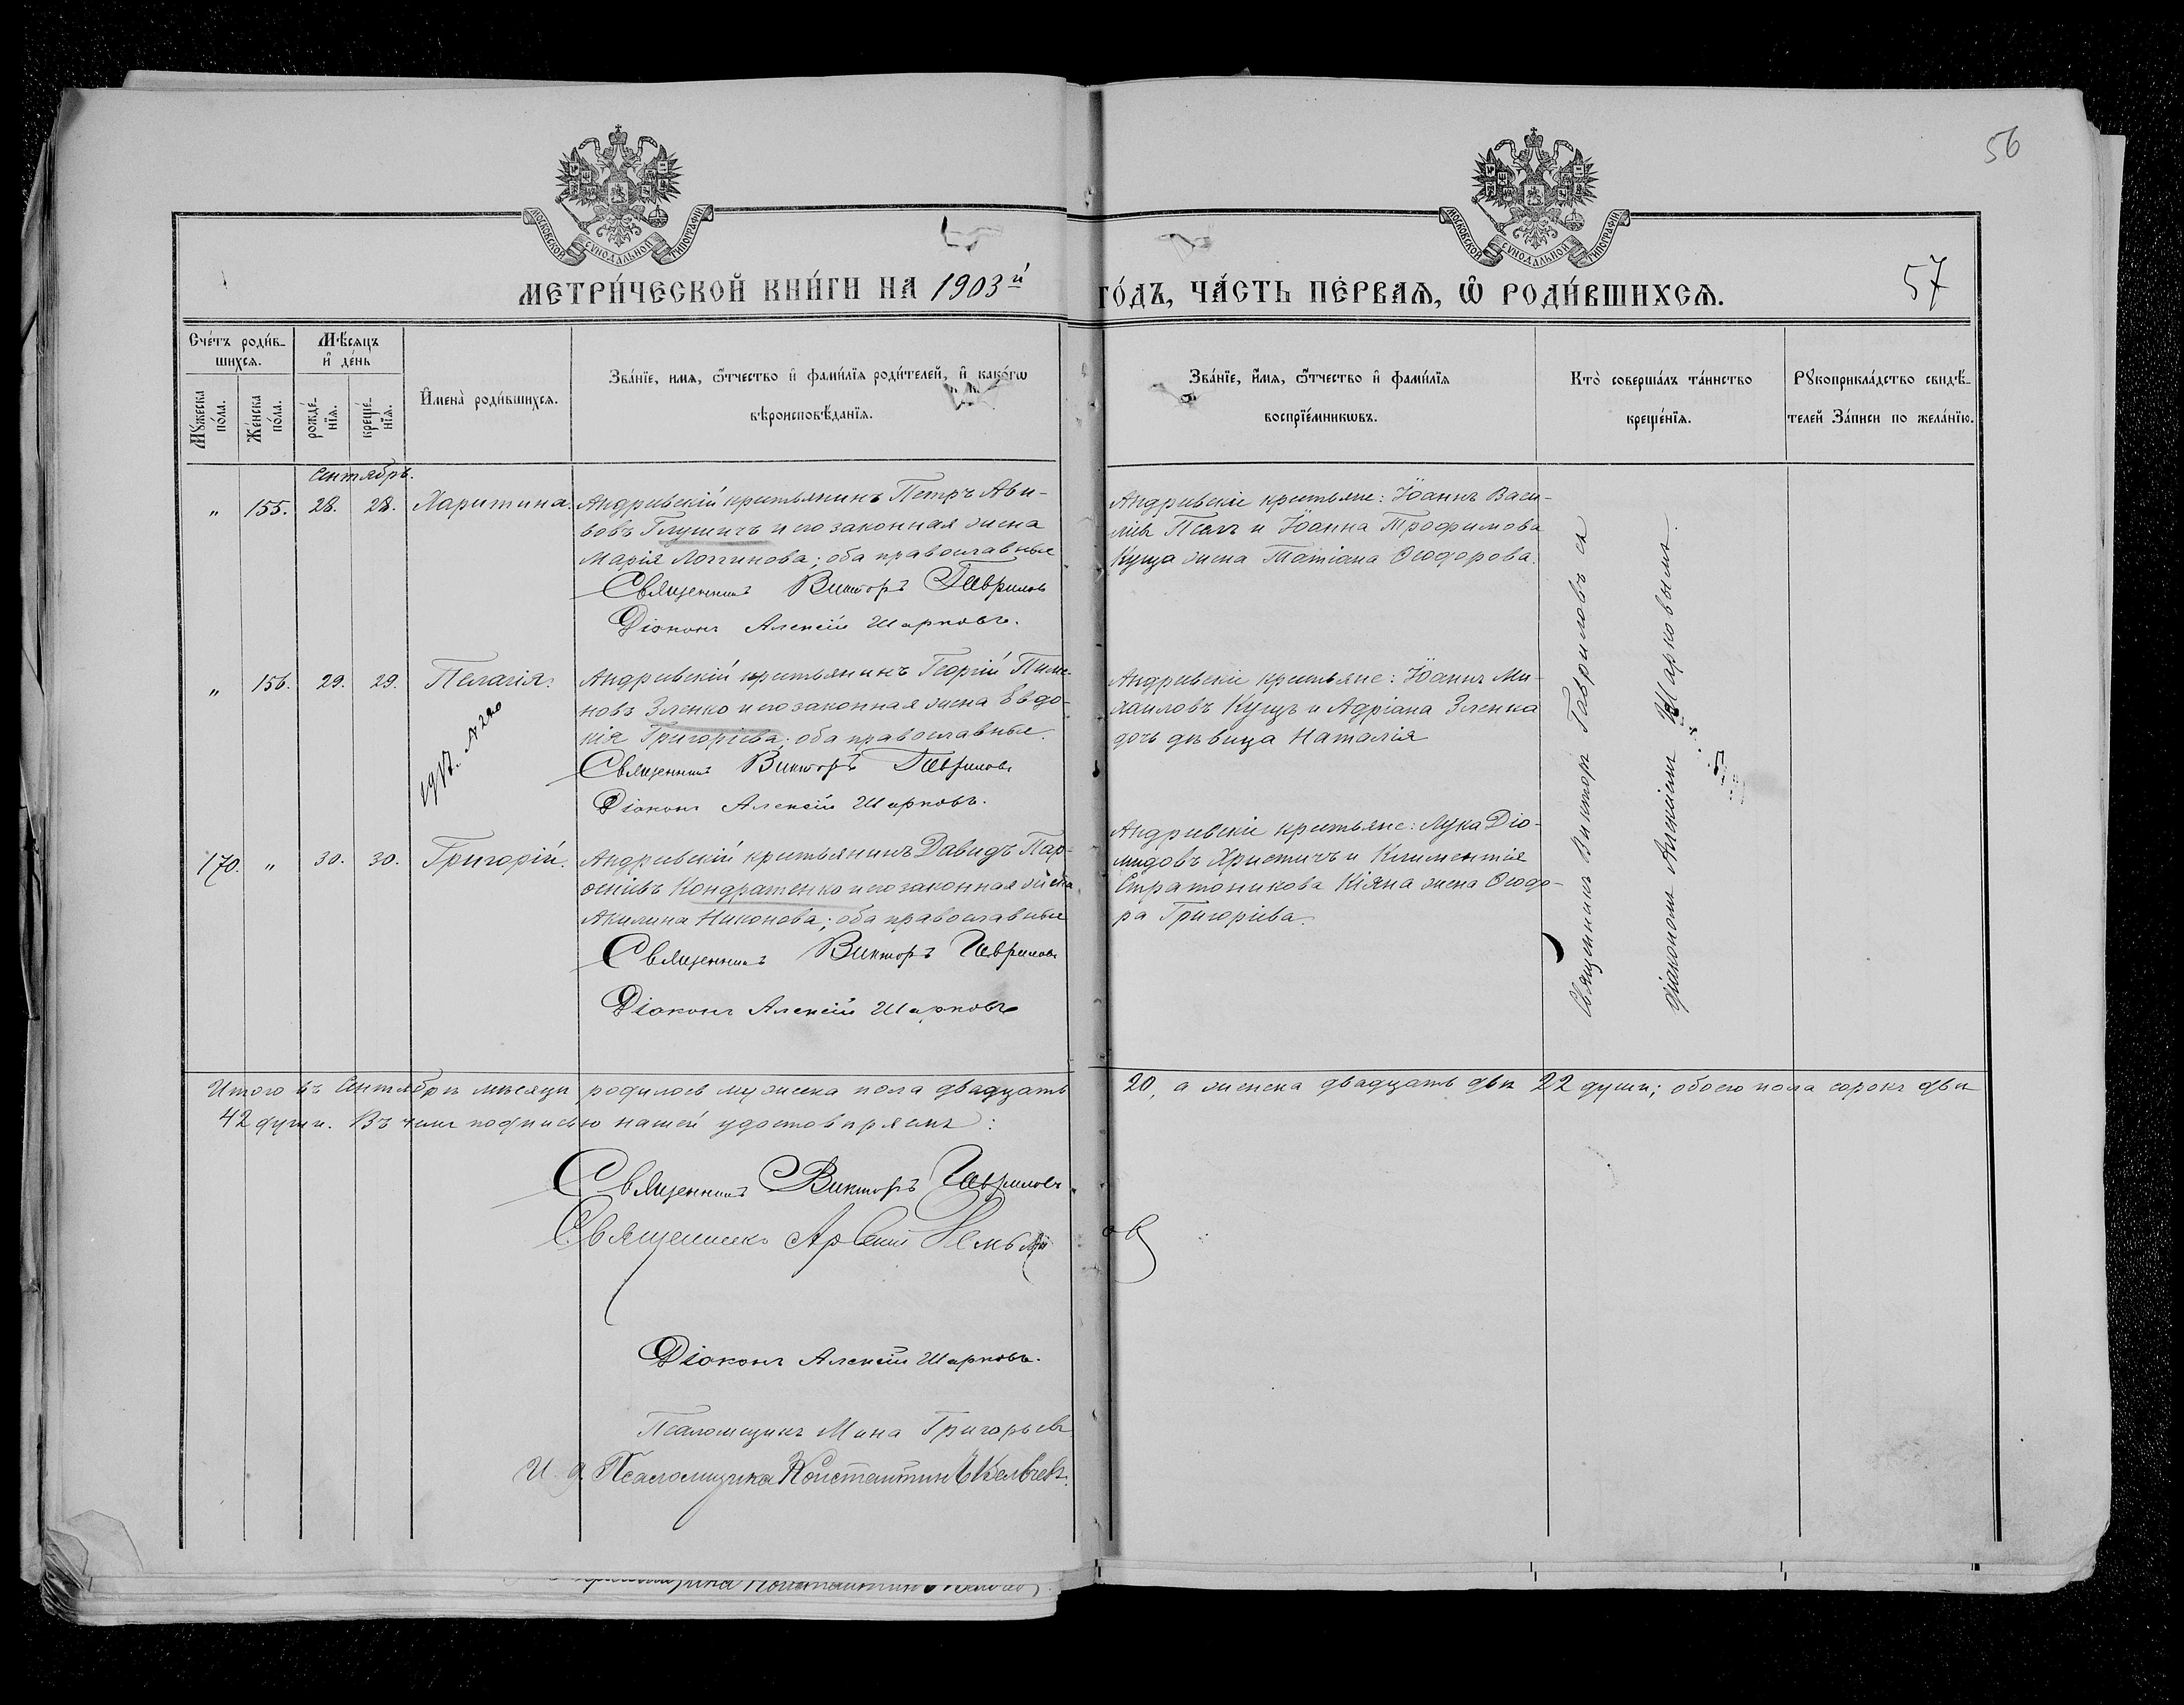 56
МОСКОВСКОЙ СѴНОДАЛЬНОЙ ТИПОГРАФІИ
МОСКОВСКОЙ СѴНОДАЛЬНОЙ ТИПОГРАФІИ
МЕТРИ́ЧЕСКОЙ КНИ́ГИ НА 1903й ГО́ДЪ, ЧА́СТЬ ПЕ́РВАЯ, Ѡ РОДИ́ВШИХСЯ.
57
Сче́тъ роди́в-
шихся.
Мꙋжеска по́ла.
Же́нска по́ла.
Мѣ́сяцъ
и де́нь
рожде́-
нїя.
креще́-
нїя.
Имена̀ роди́вшихся.
Зва́нїе, имя, ѿтчество и фами́лїя роди́телей, и како́гѡ
вѣроисповѣ́данїя.
Зва́нїе, и́мя, ѿтчество и фами́лїя
воспрїе́мникѡвъ.
Кто̀ соверша́лъ та́инство
креще́нїя.
Рꙋкоприкла́дство свидѣ́-
телей За́писи по жела́нїю.
Сентябрь.
„ 155. 28. 28. Харитина.
Андреевскій крестьянинъ Петръ Ави-
вовъ Глушичъ и его законная жена
Марія Логгинова; оба православные
Священникъ Викторъ Гавриловъ
Діаконъ Алексій Шарковъ.
Андреевскіе крестьяне: Іоаннъ Васи-
ліевъ Псёлъ и Іоанна Трофимова
Куща жена Татіана Ѳеодорова.
„ 156. 29. 29. Пелагія.
Андреевскій крестьянинъ Георгій Пиме-
новъ Зленко и его законная жена Евдо-
кія Григоріева; оба православные.
Священникъ Викторъ Гавриловъ
Діаконъ Алексій Шарковъ.
Андреевскіе крестьяне: Іоаннъ Ми-
хаиловъ Кущъ и Адріана Зленка
дочь дѣвица Наталія
170. „ 30. 30. Григорій.
Андреевскій крестьянинъ Давидъ Пар-
ѳеніевъ Кондратенко и его законная жена
Акилина Никонова; оба православные
Священникъ Викторъ Гавриловъ
Діаконъ Алексій Шарковъ
Андреевскіе крестьяне: Лука Діо-
мидовъ Христичъ и Климентія
Стратоникова Кіяна жена Ѳеодо-
ра Григоріева.
Священникъ Викторъ Гавриловъ съ
діакономъ Алексіемъ Шарковымъ.
Итого въ Сентябрѣ мѣсяцѣ родилось мужеска пола двадцать 20, а женска двадцать двѣ 22 души; обоего пола сорокъ двѣ
42 души. Въ чемъ подписью нашей удостовѣряемъ:
Священникъ Викторъ Гавриловъ
Священникъ Арсеній
Діаконъ Алексій Шарковъ.
Псаломщикъ Мина Григорьевъ
И. д. Псаломщика Константинъ